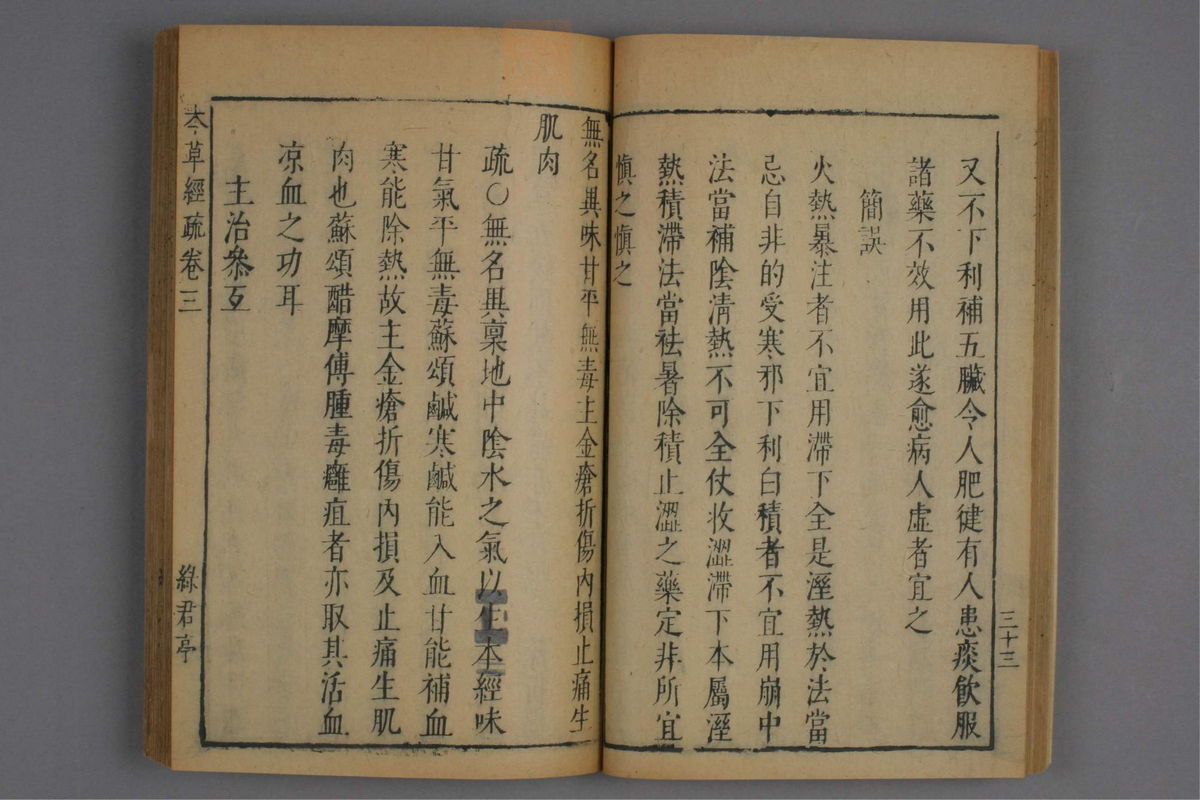 又不下利補五臟令人肥健有人患痰飲服
諸藥不效用此遂愈病人虛者宜之
簡誤
火熱暴注者不宜用滯下全是溼熱於法當
忌自非的受寒邪下利白積者不宜用崩中
法當補陰清熱不可全仗收澀滯下本屬溼
熱積滯法當祛暑除積止澀之藥定非所宜
慎之慎之
三十三
無名異味甘平無毒主金瘡折傷內損止痛生
肌肉
疏○無名異稟地中陰水之氣以生本經味
甘氣平無毒蘇頌鹹寒鹹能入血甘能補血
寒能除熱故主金瘡折傷內損及止痛生肌
肉也蘇頌醋摩傅腫毒癰疽者亦取其活血
凉血之功耳
主治叅互
本草經疏卷三
綠君亭